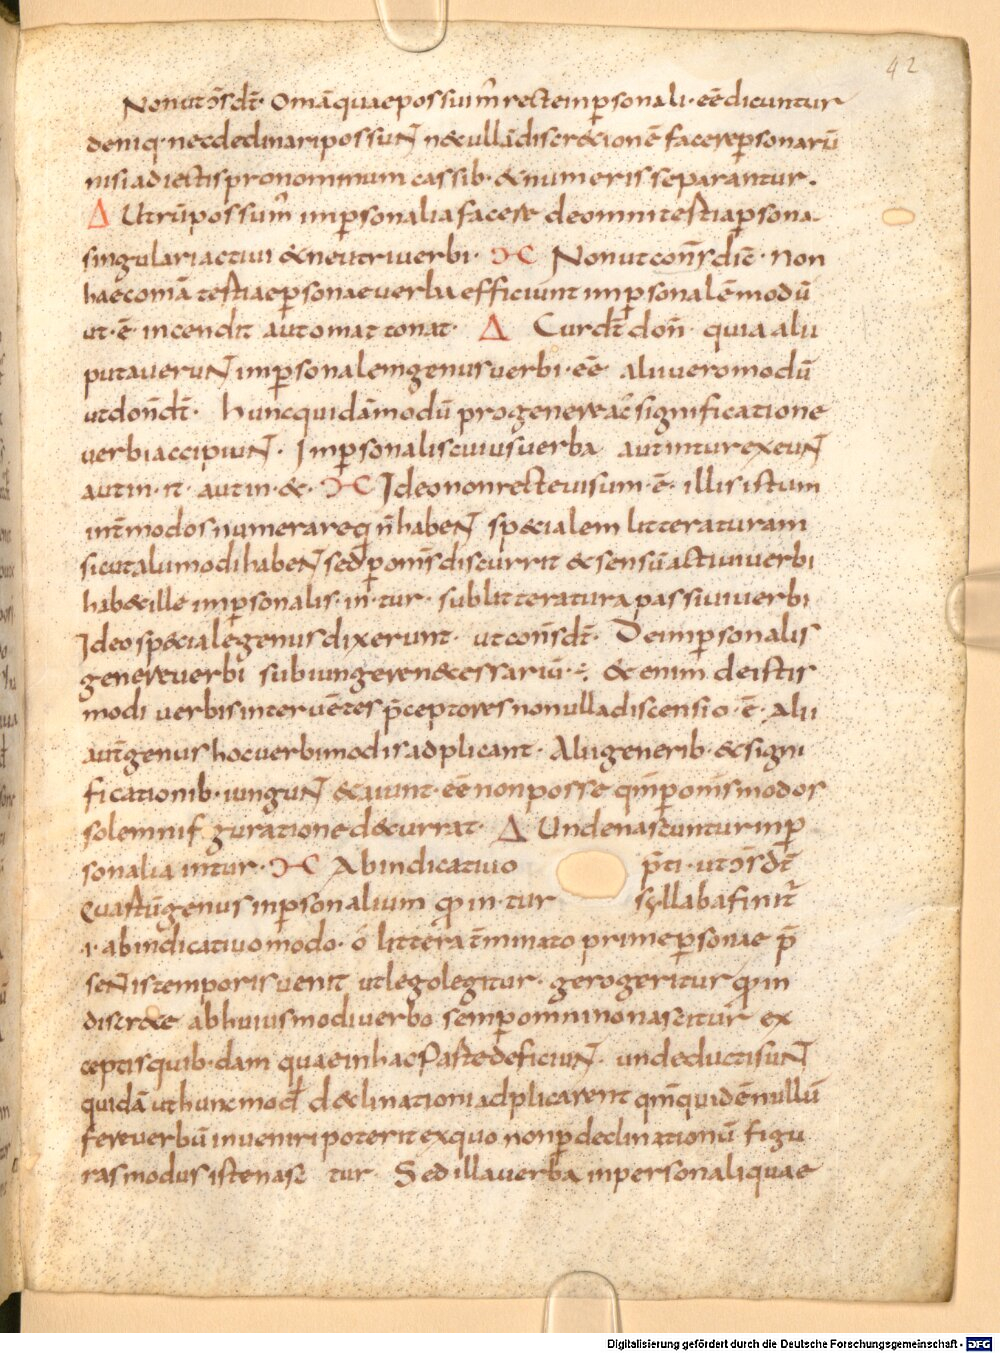 42
Non ut c̄s dt̄· Omā quae possum̄ recte inp̱sonali· eē dicuntur
deniq· nec declinari possuN n& ullā discr&ionē facere p̱sonarū
nisi adiectis pronominum cassib· & numeris separantur.
Δ Utrū possum̄ inp̱sonalia facere de omni tertia p̱sona
singulari activi & neutri verbi· ƆC Non ut cons̄ dic̄· non
haec omā tertiae p̱sonae verba efficiunt inp̱sonalē modū
ut· ē· incendit aut omat tonat· Δ Cur dt̄ don̄· quia alii
putaveruN inp̱sonalem genus verbi· eē alii vero modū
ut don̄ dt̄· hunc quidā modū pro genere ac̄ significatione
verbi accipiuN· Inp̱sonalis cuius verba aut in tur exeuN
aut in· it· aut in· &· ƆC Ideo non recte visum· ē· illis istum
int̄ modos numerare q n̄ habeN sp&ialem litteraturam
sicut alii modi habeN sed p̱ omīs discurrit & sensū activi verbi
hab& ille inp̱sonalis· in· tur· sub litteratura passivi verbi
Ideo sp&iale genus dixerunt· ut cons̄ dt̄· De inp̱sonalis
genere verbi subiungere necessariū· ÷· &enim de istis
modi verbis inter vētes p̄ceptores nonulla discensio· ē· alii
aut̄ genus hoc verbi modis adplicant· Alii generib· & signi
ficationib· iunguN & aiunt· eē non posse qm̄ p̱ omīs modos
solemni figuratione decurrat· Δ Unde nascuntur inp̱
sonalia in tur· ƆC Ab indicativo p̄ti· ut c̄s dt̄
Quartū genus inp̱sonalium q in· tur syllaba finit̄
·i· ab indicativo modo· o littera t̄minato prime p̱sonae p̄
seNis temporis venit ut lego legitur· gero geritur q in
discr&e ab huiusmodi verbo semp̱ omnino nascitur ex
ceptis quib·dam quae in hac parte deficiuN· unde ducti suN
quidā ut hunc mod̄ declinationi adplicarent qm̄ quidē nullū
fere verbū inveniri poterit ex quo non p̱ declinationū figu
ras modus iste nasc tur· Sed illa verba inpersonali quae
Digitalisierung gefördert durch die Deutsche Forschungsgemeinschaft - DFG